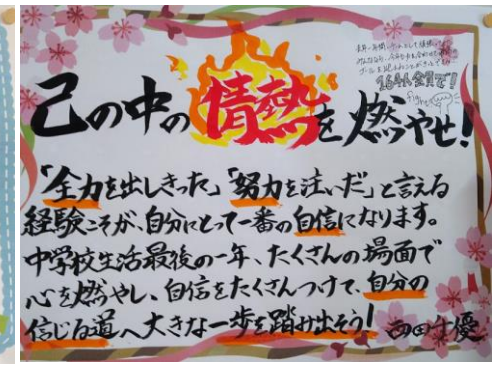 己の中の情熱を燃やせ!
「全力を出しきった」「努力を注いだ」と言える
経験こそが、自分にとって一番の自信になります。
中学校生活最後の一年、たくさんの場面で
心を燃やし、自信をたくさんつけて、自分の
信じる道へ大きな一歩を踏み出そう!